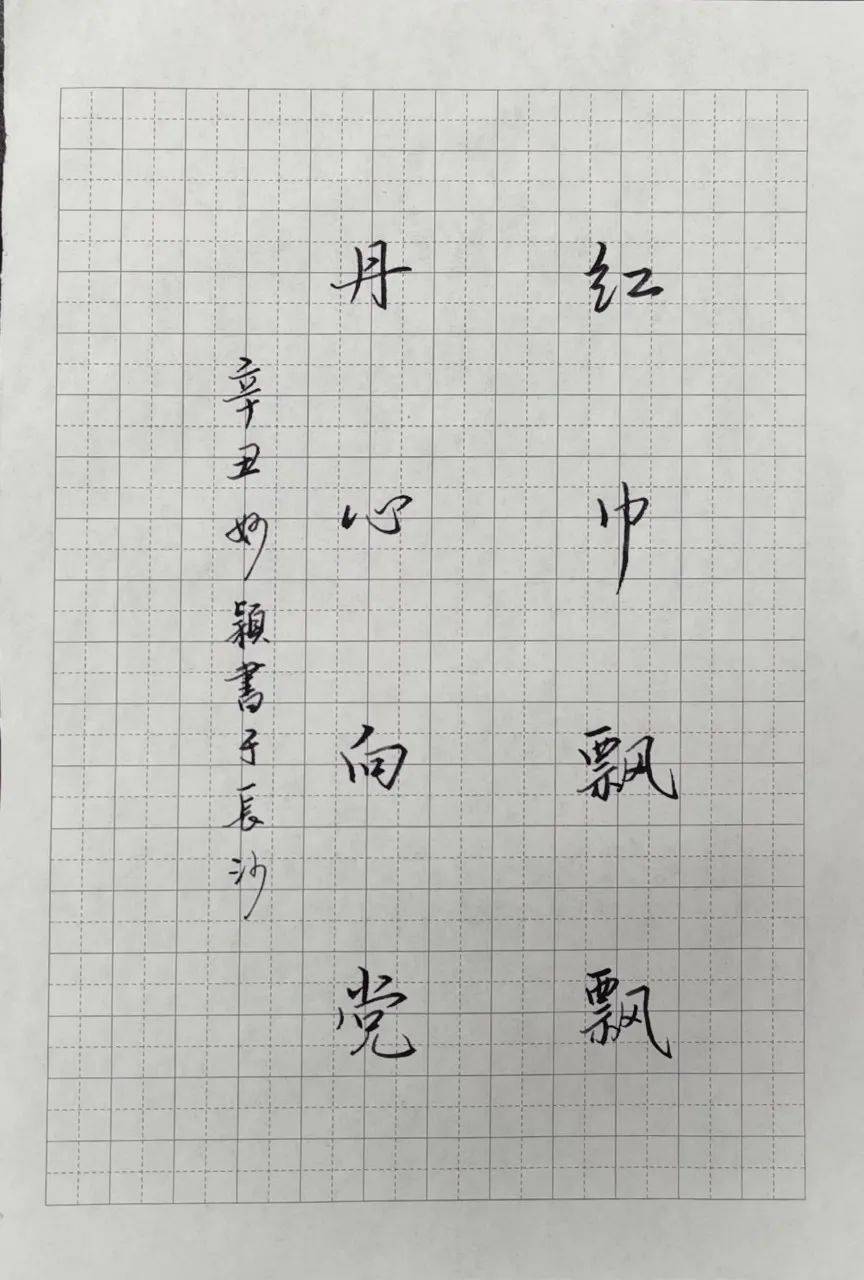 红巾飘飘
丹心向党
辛丑妙颖書于長沙